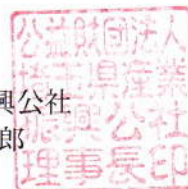 興公社
郎
公益財団法人
埼玉県産業
振興公社
理事長印